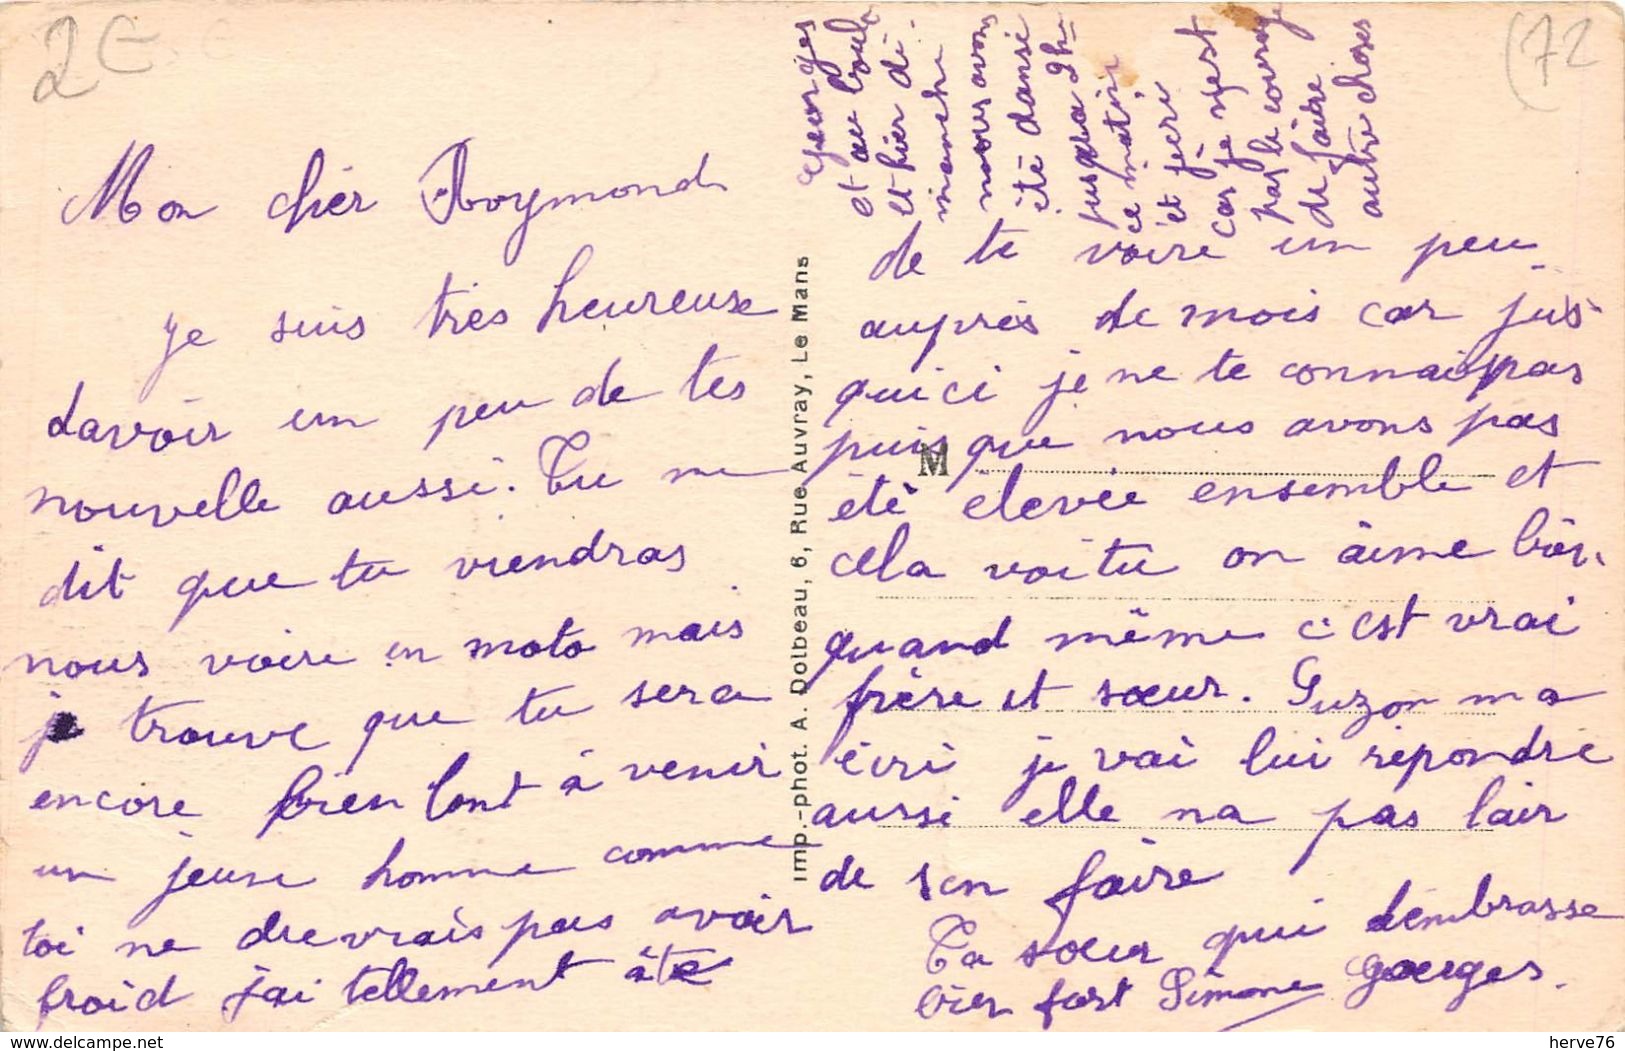 2E
(72
Mon chér Raymond
je suis très heureuse
davoir un peu de tes
nouvelle aussi. Tu me
dit que tu viendras
nous voire en moto mais
je trouve que tu sera
encore bien lont à venir
un jeune homme comme
toi ne drevrais pas avoir
froid j'ai tellement âte
de te voire un peu
auprès de mois car jus-
quici je ne te connais pas
puisque nous avons pas
été élevée ensemble et
cela voitu on aime bien
quand même c'est vrai
frère et sœur. Suzon ma
écri je vai lui répondre
aussi elle na pas lair
de sen faire
Ta sœur qui tembrasse
bien fort Simone Goerges.
Georges
et au boula
et hier di-
manche
nous avons
été danse
jusqua 2h
ce matin,
et jecri
car je nest
pas le courage
de faire
autre choses
Imp.-phot. A. Dolbeau, 6, Rue Auvray, Le Mans
M
www.delcampe.net
herve76